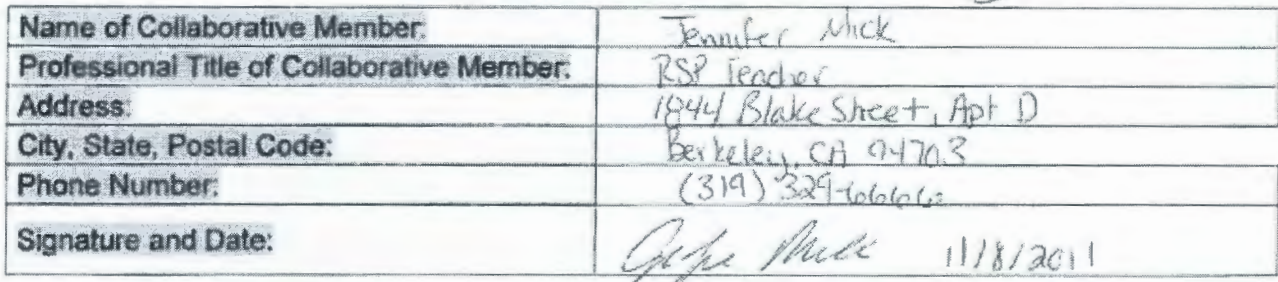 Name of Collaborative Member: Jennifer Mick
Professional Title of Collaborative Member: RSP Teacher
Address: 1844 Blake Street, Apt D
City, State, Postal Code: Berkeley, CA 94703
Phone Number: (319) 329-6666
Signature and Date: 11/8/2011